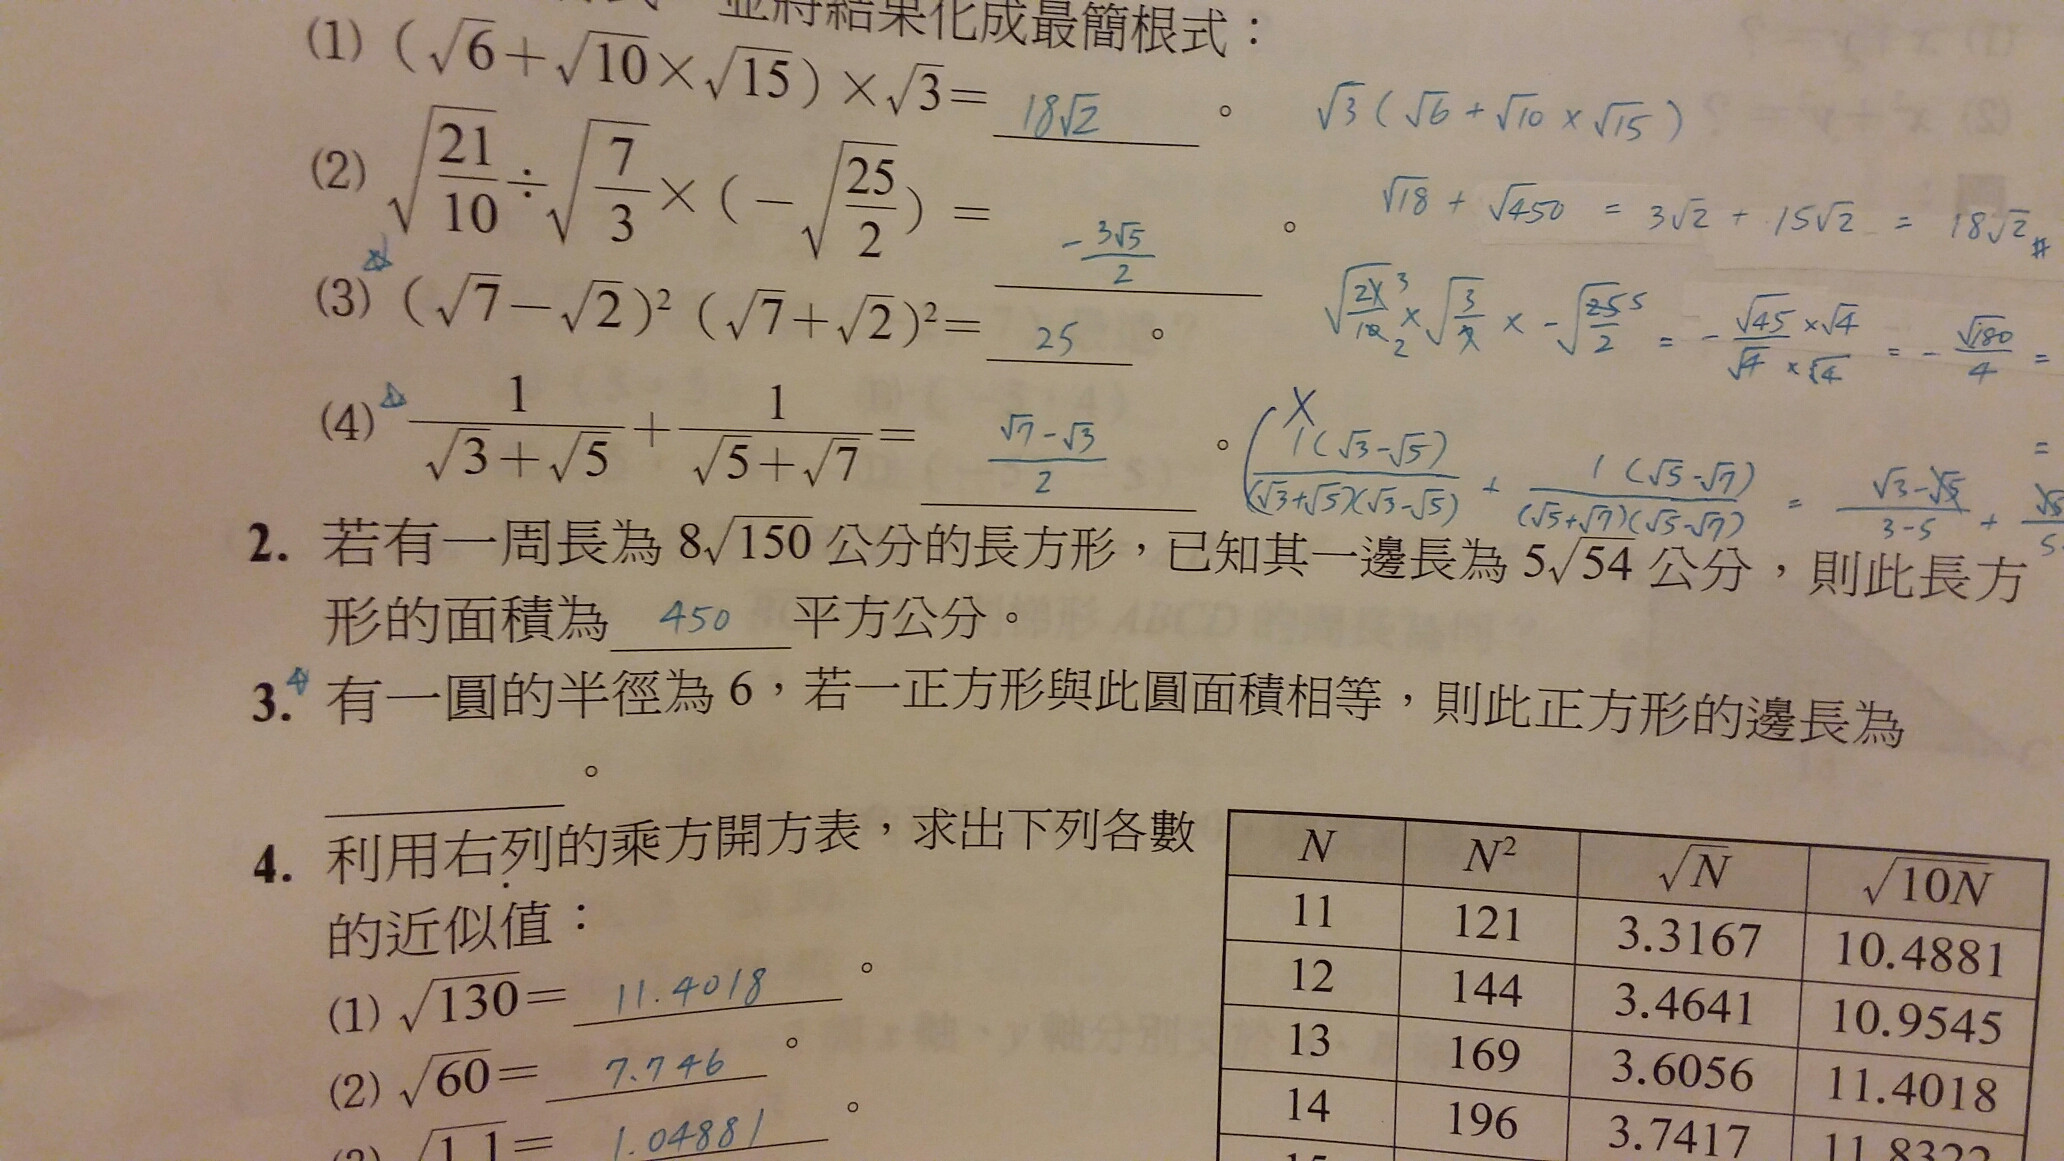 並將結果化成最簡根式：
(1) (√6+√10×√15)×√3= 18√2 。 √3(√6+√10×√15)
√18 + √450 = 3√2 + 15√2 = 18√2 #
(2) √(21/10)÷√(7/3)×(-√(25/2)) = -3√5/2 。
√(21/10) 3 2 × √(3/7) × -√(25/2) 5 = -(√45×√4)/(√4×√4) = -√180/4 =
(3) (√7-√2)² (√7+√2)²= 25 。
(4) 1/(√3+√5)+1/(√5+√7)= (√7-√3)/2 。
X
1(√3-√5)/((√3+√5)(√3-√5)) + 1(√5-√7)/((√5+√7)(√5-√7)) = (√3-√5)/(3-5) +
=
2. 若有一周長為 8√150 公分的長方形，已知其一邊長為 5√54 公分，則此長方
形的面積為 450 平方公分。
3. 有一圓的半徑為 6，若一正方形與此圓面積相等，則此正方形的邊長為
。
4. 利用右列的乘方開方表，求出下列各數
的近似值：
(1) √130= 11.4018 。
(2) √60= 7.746 。
√1.1= 1.04881 。
N N² √N √10N
11 121 3.3167 10.4881
12 144 3.4641 10.9545
13 169 3.6056 11.4018
14 196 3.7417 11.8322